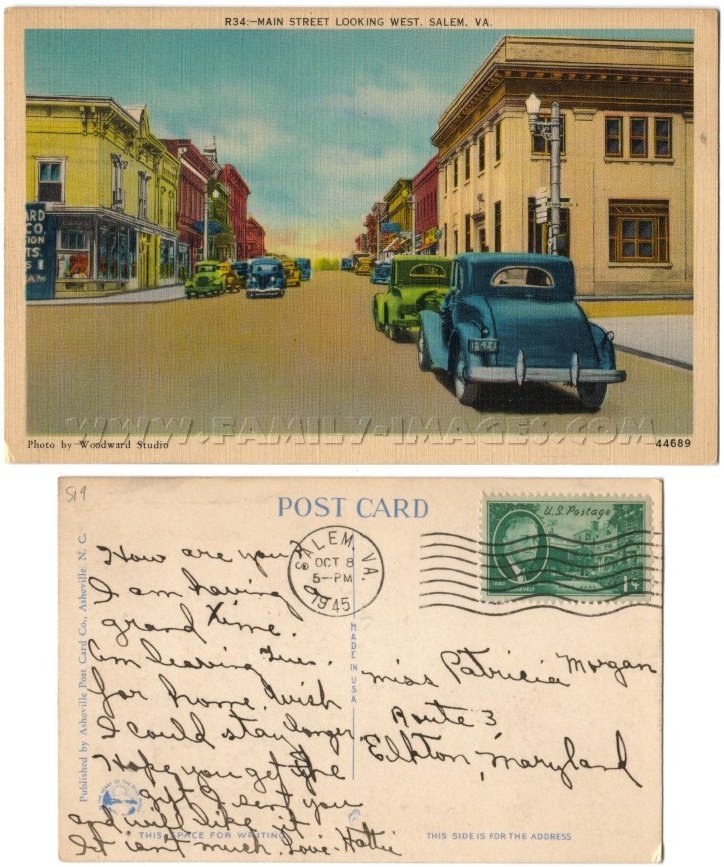 R34:—MAIN STREET LOOKING WEST, SALEM, VA.
ARD
CO.
ION
TS.
S
Photo by Woodward Studio
44689
WWW.FAMILY-IMAGES.COM
S19
POST CARD
SALEM, VA.
OCT 8
5-PM
1945
U.S. Postage
ROOSEVELT
1¢
How are you?
I am having a
grand time.
Am leaving Tues.
for home. Wish
I could stay longer.
Hope you get the
gift I sent you
and will like it
It isn't much. Love. Hattie
Miss Patricia Morgan
Route 3
Elkton, Maryland
MADE IN USA
Published by Asheville Post Card Co., Asheville, N. C.
THIS SPACE FOR WRITING
THIS SIDE IS FOR THE ADDRESS